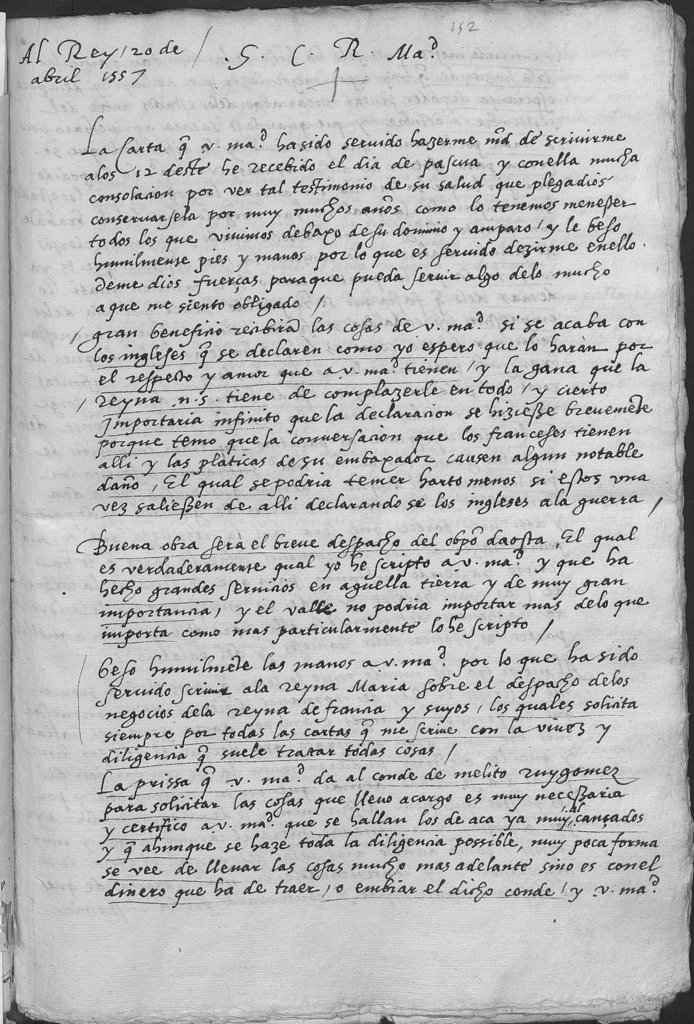 152
Al Rey / 20 de
abril 1557
/ . S . C . R . Ma.d
La Carta q̃ v. ma.d ha sido seruido hazerme md de scriuirme
alos 12 deste he recebido el dia de pascua y conella mucha
consolacion por ver tal testimonio de su salud que plegadios
conseruarsela por muy muchos años como lo tenemos menester
todos los que viuimos debaxo de su dominio y amparo / y le beso
humilmense pies y manos por lo que es seruido dezirme enello.
Deme dios fuerças paraque pueda seruir algo delo mucho
aque me siento obligado /
/ gran benefiçio reçibiran las cosas de v. ma.d si se acaba con
los ingleses q̃ se declaren como yo espero que lo haràn por
el respecto y amor que a v. ma.d tienen / y la gana que la
/ reyna .n.s. tiene de complazerle en todo / y cierto
Importaria infinito que la declaracion se hiziesse breuemẽte
porque temo que la conuersacion que los franceses tienen
alli y las plàticas de su embaxador causen algun notable
daño, El qual se podria temer harto menos si estos vna
vez saliessen de alli declarando se los ingleses ala guerra /
Buena obra serà el breue despacho del obpõ daosta, El qual
es verdaderamense qual yo he scripto a v. ma.d y que ha
hecho grandes seruicios en aquella tierra y de muy gran
importancia, y el valle no podria importar mas delo que
importa como mas particularmente lo he scripto /
beso humilmẽte las manos a v. ma.d por lo que ha sido
seruido scriuir ala reyna Maria sobre el despacho delos
negocios dela reyna de francia y suyos, los quales solicita
siempre por todas las cartas q̃ me scriue con la viuez y
diligencia q̃ suele tractar todas cosas /
La prissa q̃ v. ma.d da al conde de melito ruygomez
para solicitar las cosas que lleuo acargo es muy neceßaria
y certifico a v. ma.d que se hallan los de aca ya muy mal cansados
y q̃ ahunque se haze toda la diligencia possible, muy poca forma
se vee de lleuar las cosas mucho mas adelante sino es conel
dinero que ha de traer, o embiar el dicho conde / y v. ma.d